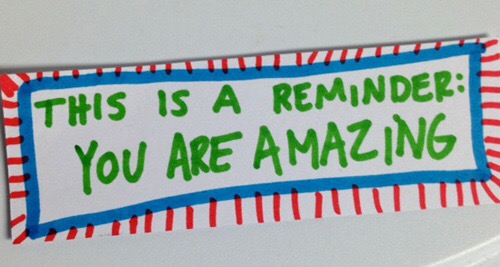 THIS IS A REMINDER:
YOU ARE AMAZING